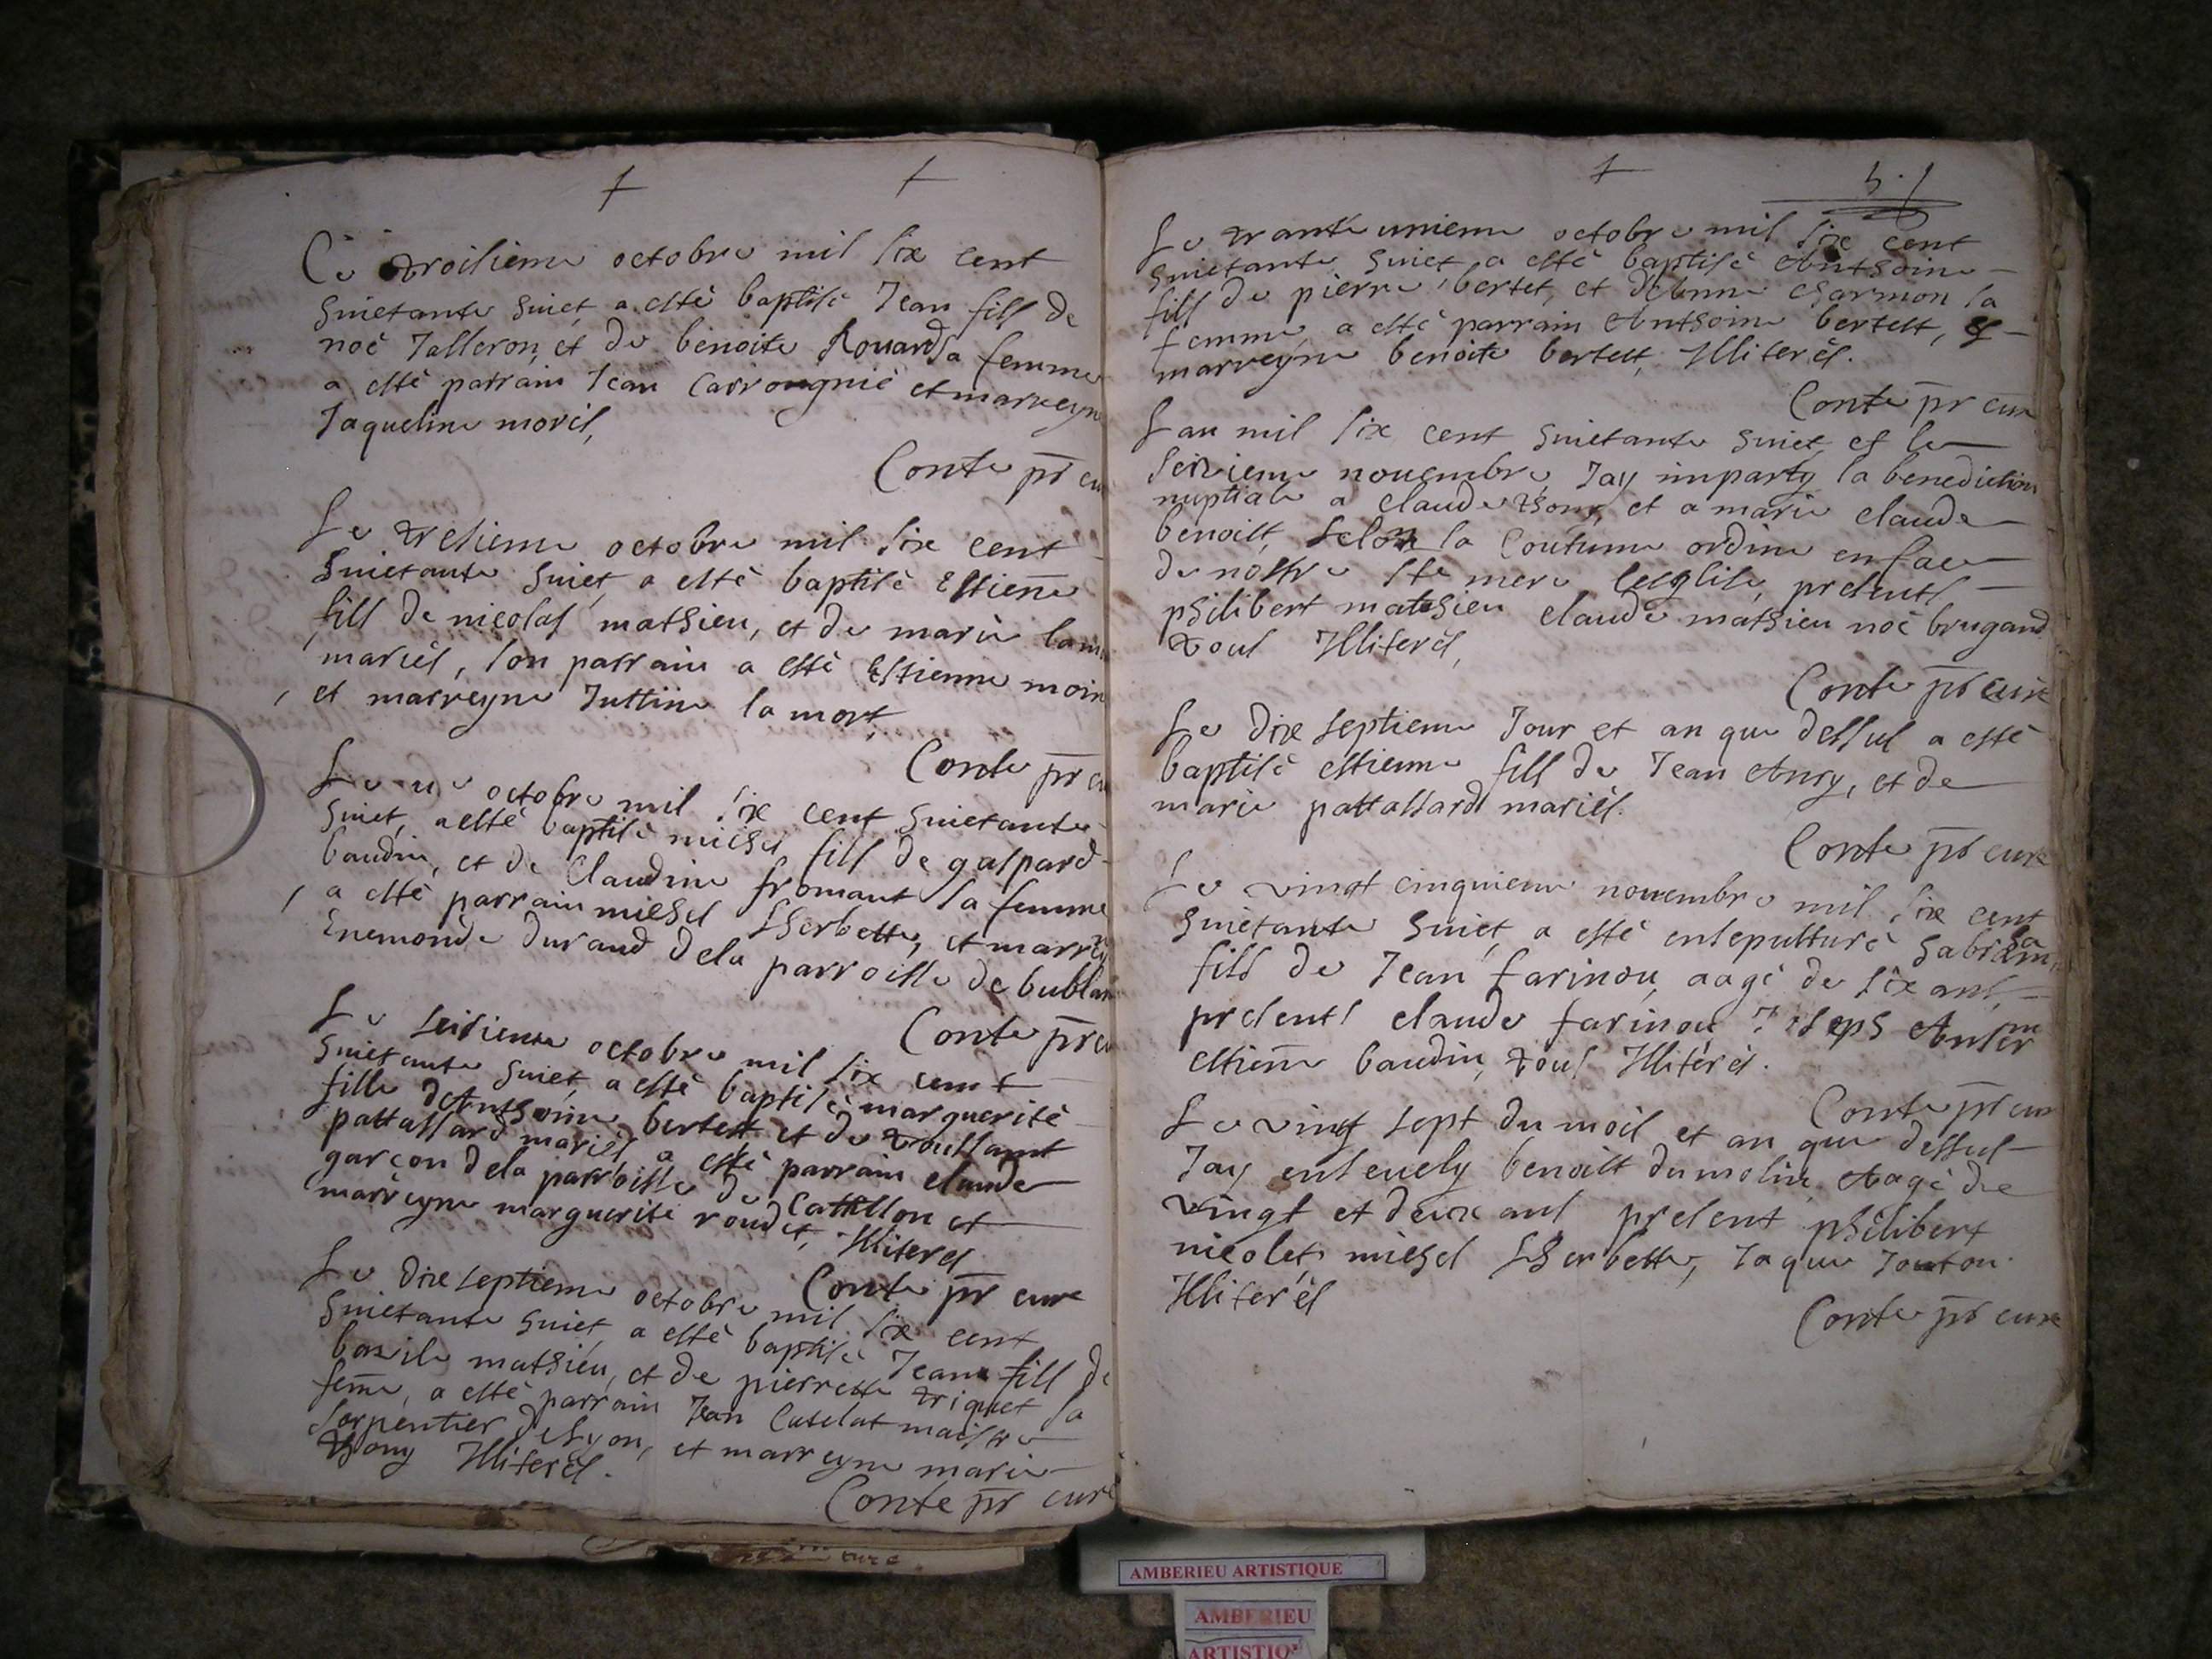 Ce troisieme octobre mil six cent
huictante huict a esté baptisé Jean fils de
noé Talleron, et de benoite Rouard sa femme
a esté parrain Jean Carrougnié et marreyn
Jaqueline morel,
Conte pr cu
Le tresieme octobre mil six cent
huictante huict, a esté baptisé Estiene
fils de nicolas mathieu, et de marie lam
mariés, son parrain a esté Estienne moin
et marreyne Justine la mort,
Conte pr cu
Le octobre mil six cent huictante
huict, a esté baptisé michel fils de gaspard
baudin, et de Claudine fromant sa femme
a esté parrain michel Lherbette, et marrey
Enemonde durand dela parroisse de bublan
Conte pr cu
Le seisieme octobre mil six cent
huictante huict, a esté baptisé marguerite
fille dAnthoine bertet et de toussaint
pattassard mariés, a esté parrain claude
garçon dela parroisse de Catillon et
marreyne marguerite roudet, Illiterés
Conte pr cure
Le dixseptieme octobre mil six cent
huictante huict, a esté baptisé Jean fils de
basile mathieu, et de pierrette triquet sa
feme, a esté parrain Jean Catelat maistre
serpentier de Lyon, et marreyne marie
thony Illiterés.
Conte pr curé
51
Le trante unieme octobre mil six cent
huictante huict, a esté baptisé Anthoine
fils de pierre bertet, et deAnne charmon sa
femme, a esté parrain Anthoine bertett, &
marreyne benoite bertett, Illiterés.
Conte pr cure
Lan mil six cent huictante huict, et le
seizieme nouembre, Jay imparty la benediction
nuptiale a claude thony, et a marie claude
benoist, selon la Coutume ordine en face
de nostre Ste mere lesglise, presents
philibert mathieu claude mathieu noé brugand
tous Illiterés,
Conte pr cure
Le dix septieme Jour et an que dessus a esté
baptisé estienne fils de Jean Anry, et de
marie pattassard mariés.
Conte pr cure
Le vingt cinquieme nouembre mil six cent
huictante huict, a esté ensepulturé habraham
fils de Jean farinou, aagé de six ans,
presents claude farinou, Joseph
estiene baudin, tous Illiterés.
Conte pr cur
Le vingt sept du mois et an que dessus
Jay enseuely benoist dumolin, Aagé de
vingt et deux ans present philibert
nicolet, michel Lherbette, Jaque Jouton
Illiterés
Conte pr cure
AMBERIEU ARTISTIQUE
AMBERIEU
ARTISTIQ